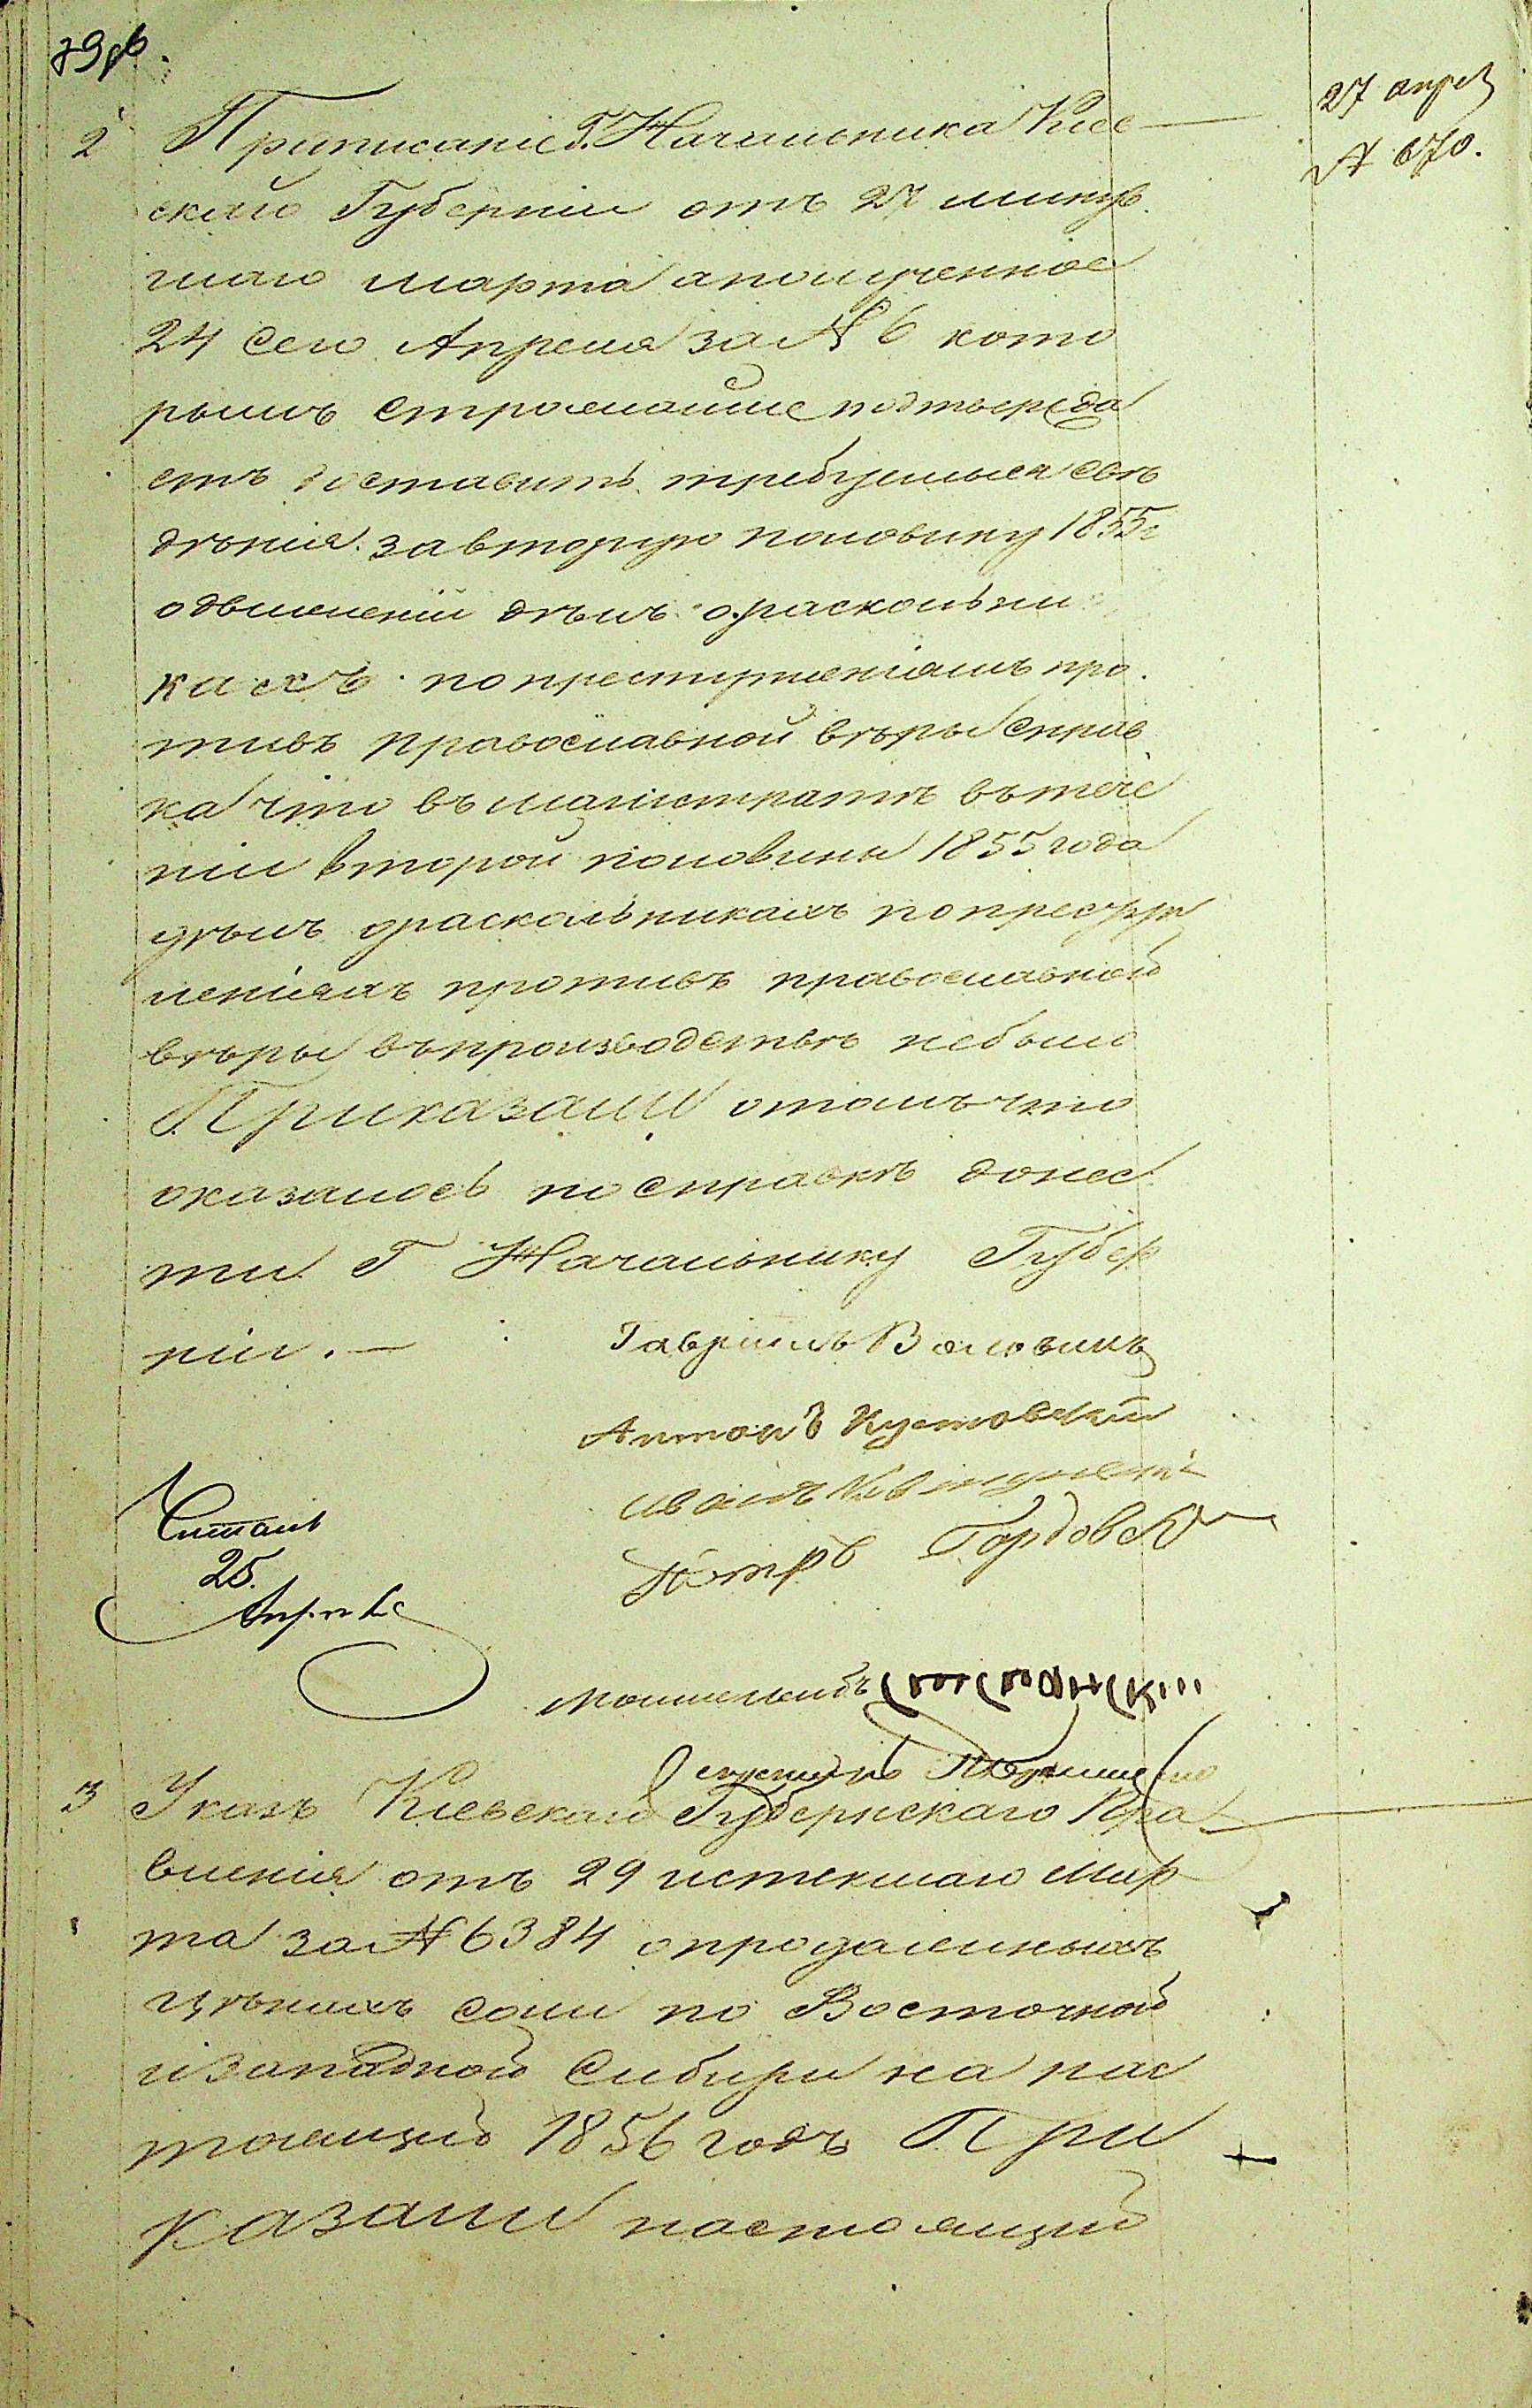 27 апрел
№ 670.
2 Приписаніе Г. Начальника Кіев
ской Губерніи отъ 27 минув
шаго марта а полученное
24 сего Апреля за № 6 кото
рымъ строжайше подтвержда
етъ доставить требуемыя све
дѣнія за вторую половину 1855 г
о движеніи дѣлъ о раскольни
кахъ по преступленіямъ про
тивъ православной вѣры Справ
ка что въ магистратѣ въ тече
ніи второй половины 1855 года
дѣлъ о раскольникахъ по преступ
леніямъ противъ православной
вѣры въ производствѣ небыло
Приказали о томъ что
оказалось по справкѣ донес
ти Г Начальнику Губер
ніи. —
Гавріилъ
Антонъ
Иванъ
Петръ
Читалъ
25.
Апреля
3 Указъ Кіевскаго Губернскаго Пра
вленія отъ 29 истекшаго Мар
та за № 6384 о продаженныхъ
цѣнахъ соли по Восточной
и Западной Сибири на нас
тоящій 1856 годъ При
казали настоящій